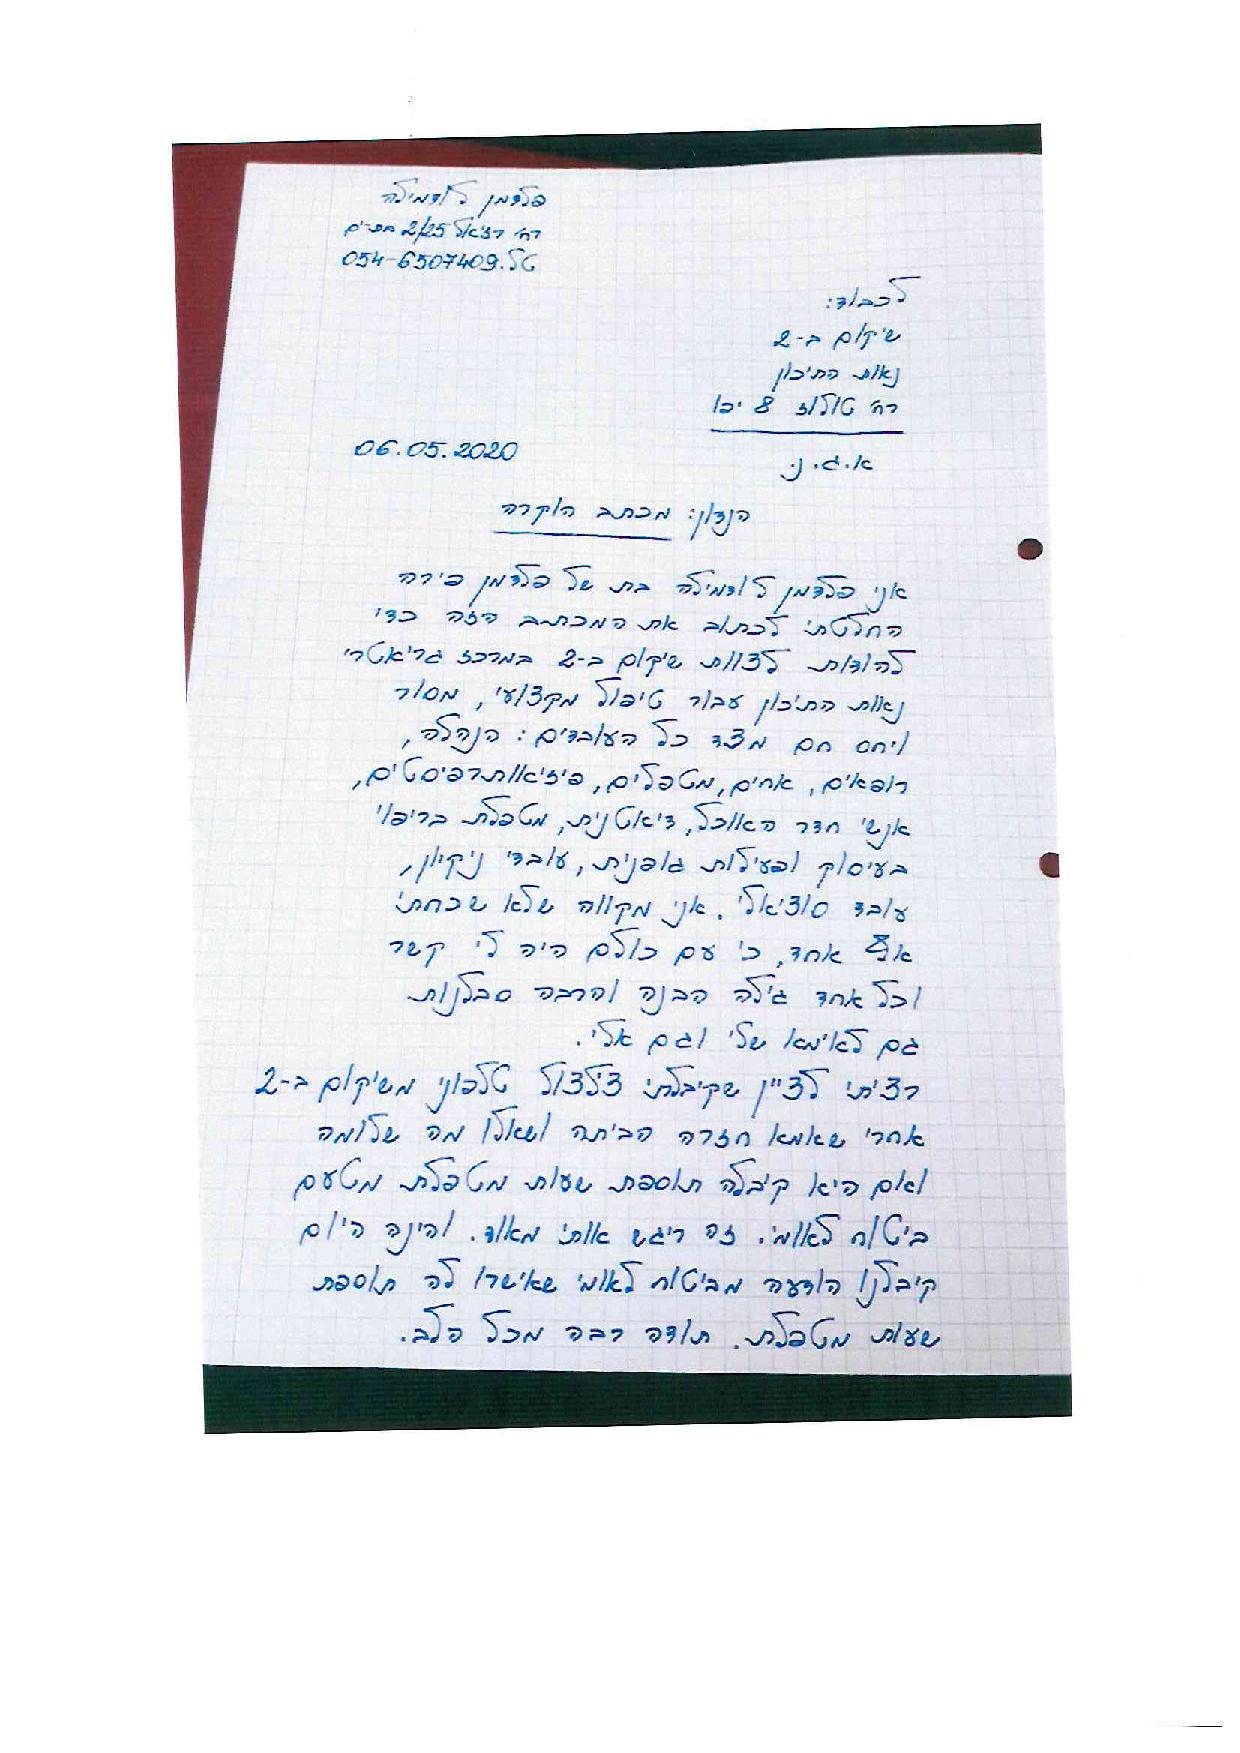 פלדמן לודמילה
רח' רזיאל 2/25 בת-ים
טל. 054-6507409
לכבוד:
שיקום ב-2
נאות התיכון
רח' טולוז 8 יפו
06.05.2020
א.ג.נ.
הנדון: מכתב הוקרה
אני פלדמן לודמילה בת של פלדמן פירה
החלטתי לכתוב את המכתב הזה כדי
להודות לצוות שיקום ב-2 במרכז גריאטרי
נאות התיכון עבור טיפול מקצועי, מסור
ויחס חם מצד כל העובדים: הנהלה,
רופאים, אחים, מטפלים, פיזיאותרפיסטים,
אנשי חדר האוכל, דיאטנית, מטפלת בריפוי
בעיסוק ופעילות גופנית, עובדי ניקיון,
עובד סוציאלי. אני מקווה שלא שכחתי
אף אחד, כי עם כולם היה לי קשר
וכל אחד גילה הבנה והרבה סבלנות
גם לאימא שלי וגם אלי.
רציתי לציין שקיבלתי צלצול טלפוני משיקום ב-2
אחרי שאמא חזרה הביתה ושאלו מה שלומה
ואם היא קיבלה תוספת שעות מטפלת מטעם
ביטוח לאומי. זה ריגש אותי מאוד. והינה היום
קיבלנו הודעה מביטוח לאומי שאישרו לה תוספת
שעות מטפלת. תודה רבה מכל הלב.